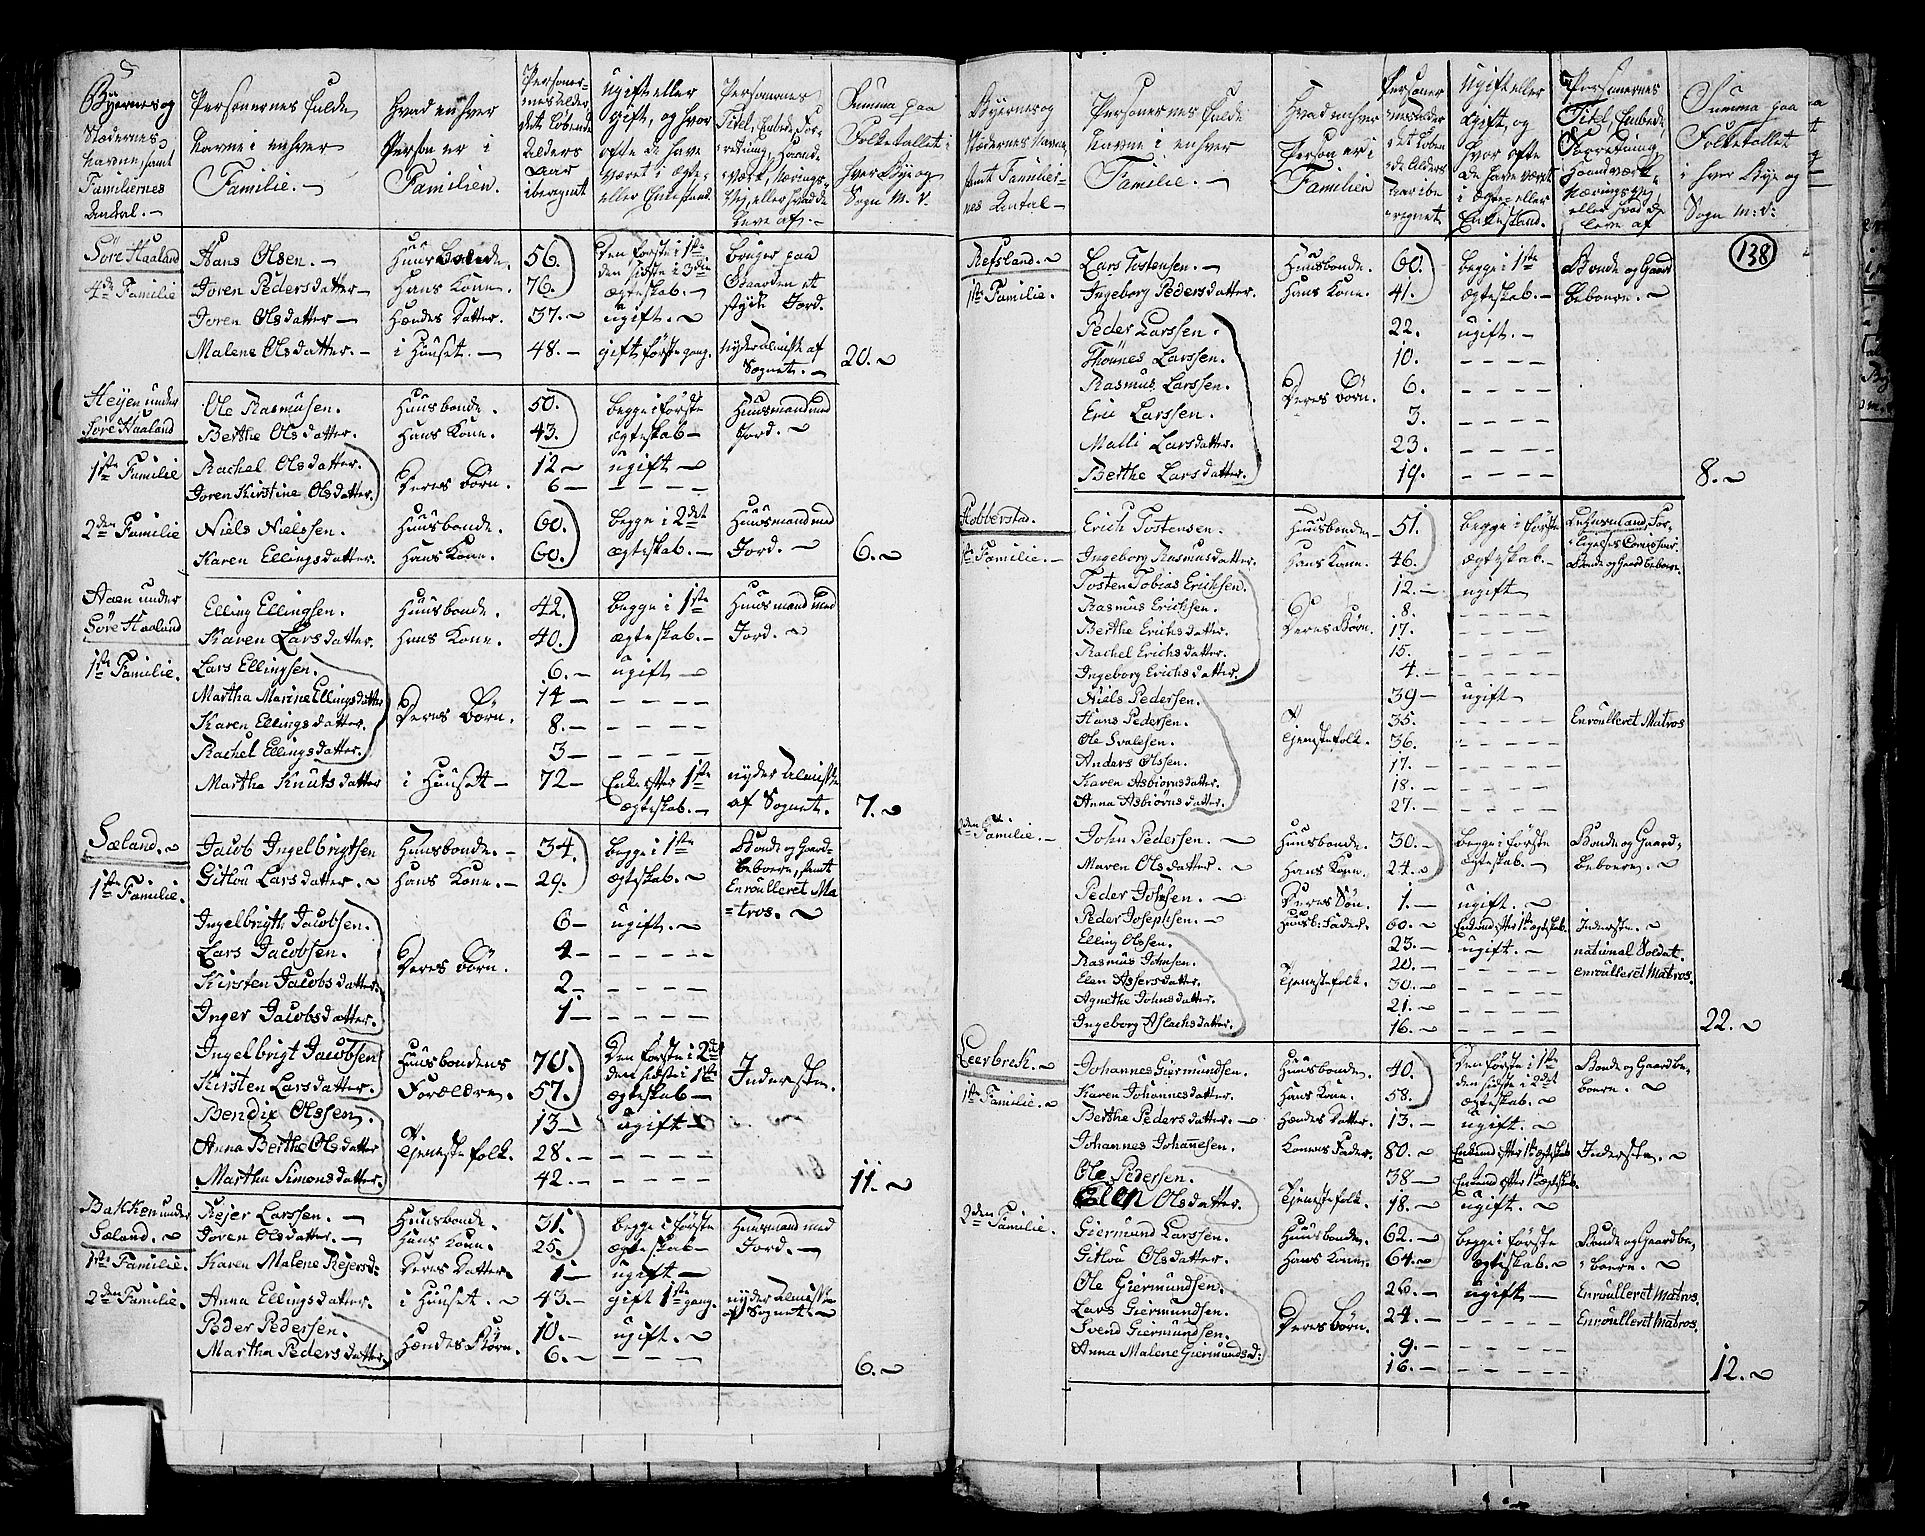 Byernes og
Stædernes
Navne, samt
Familiernes
Antal. —
Personernes fulde
Navne i enhver
Familie. —
Hvad enhver
Person er i
Familien.
Personer-
nes Alder,
det løbende
Alders
Aar
iberegnet
Ugift eller
gift, og hvor
ofte de have
været i Ægte-
eller Enkestand.
Personernes
Titel, Embede, For-
retning, Haand-
værk, Nærings-
Vej, eller hvad de
leve af. —
Summa paa
Folketallet i
hver Bye og
Sogn m. v.
Søre Haaland
4de Familie
Hans Olsen. — Huusbonde. 56. Den første i 1ste bruger paa
Joren Pedersdatter — Hans Kone. 76. den sidste i 3die Gaarden et
ægteskab. — stykke Jord.
Joren Olsdatter — Hendes Datter. 37. — ugift. —
Malene Olsdatter. — i Huuset. — 48. — gift første gang. nyder almisse af
Sognet. — 20. —
Heyen under
Søre Haaland
Ole Rasmusen. Huusbonde. 50. begge i første Huusmand med
Berthe Olsdatter. Hans Kone. 43. ægteskab — Jord. —
1ste Familie
Rachel Olsdatter. Deres Børn. 12 — ugift —
Joren Kirstine Olsdatter. 6 — — — — —
2den Familie Niels Nielssen. Huusbonde. 60. begge i 2det Huusmand med
Karen Ellingsdatter. Hans Kone. 60. ægteskab. — Jord. — 6. —
Aaen under
Søre Haaland
Elling Ellingsen. Huusbonde. 42. begge i 1ste Huusmand med
Karen Larsdatter. Hans Kone. 40. ægteskab. — Jord. —
1ste Familie. Lars Ellingsen. 6. — ugift —
Martha Marine Ellingsdatter Deres Børn. 14 — — — — —
Karen Ellingsdatter. 8. — — — — —
Rachel Ellingsdatter. 3 — — — — —
Martha Knutsdatter i Huuset — 72 — Enke efter 1ste nyder almisse
ægteskab. — af Sognet. 7. —
Sæland. —
1ste Familie.
Jacob Ingelbrigtsen Huusbonde. — 34. begge i 1ste Bonde og Gaard-
Gitlou Larsdatter. — Hans Kone. — 29. ægteskab. — beboere, samt
Enroulleret Ma-
tros. —
Ingelbrigth Jacobsen. 6 — ugift. —
Lars Jacobsen. Deres Børn. 4 — — — — —
Kirsten Jacobsdatter. 2 — — — — —
Inger Jacobsdatter. 1 — — — — —
Ingelbrigt Jacobsen Huusbondens 70. Den første i 2det
Kirsten Larsdatter. Forældre. 57. den sidste i 1ste Inderste.
ægteskab —
Bendix Olssen. 13 — ugift —
Anna Berthe Olsdatter Tjenestefolk. 28. — — — — —
Martha Simonsdatter. 42. — — — — — 11. —
Bakken under
Sæland. —
Rejer Larssen. — Huusbonde. 31. begge i første Huusmand med
Joren Olsdatter. — Hans Kone. 25. ægteskab — Jord. —
1ste Familie. Karen Malene Rejersd: Deres Datter. 1 — ugift —
2den Familie. Anna Ellingsdatter. i Huuset. — 43. — gift 1ste gang. nyder almisse
af Sognet. —
Peder Pedersen. Hendes Børn. 10. — ugift. —
Martha Pedersdatter. 6. — — — — — 6. —
Byernes og
Stædernes Navne,
samt Familier-
nes Antal —
Personernes fulde
Navne i enhver
Familie. —
Hvad enhver
Person er i
Familien
Personer
nes Alder
det løben
de Alders
Aar ibe
regnet
Ugift eller
gift, og
hvor ofte
de have været
i Ægte- eller
Enkestand.
Personernes
Titel, Embede,
Forretning,
Haandværk,
Næringsvej
eller hvad de
leve af
Summa paa
Folketallet
i hver Bye og
Sogn m: v:
138
Refsland. — Lars Tostensen. — Huusbonde. 60. begge i 1ste Bonde og Gaard
1ste Familie. Ingeborg Pedersdatter. Hans Kone. 41. ægteskab. — beboere. —
Peder Larssen. 22. ugift. —
Thönnes Larssen. 10. — — — —
Rasmus Larssen. Deres Børn. 6. — — — —
Eric Larssen. 3. — — — —
Malli Larsdatter. 23. — — — —
Berthe Larsdatter. 19. — — — — 8. —
Hobberstad. Erich Tostensen. Huusbonde — 51. begge i første Lehnsmand, For-
ligelses Commissair.
1ste Familie. — Ingeborg Rasmusdatter. Hans Kone. 46. ægteskab. — Bonde og Gaardbeboere.
Tosten Tobias Erichsen. 12. — ugift
Rasmus Erichsen. 8. — — — —
Berthe Erichsdatter. Deres Børn. 17. — — — —
Rachel Erichsdatter. 15. — — — —
Ingeborg Erichsdatter. 4. — — — — —
Niels Pedersen. 39 — ugift
Hans Pedersen. 35. — — — — Enroulleret Matros
Ole Svalesen. Tjenestefolk. 36. — — — —
Anders Olssen. 17. — — — — —
Karen Asbiørnsdatter. 18. — — — — —
Anna Asbiørnsdatter. 27. — — — — —
2den Familie. — John Pedersen. — Huusbonde. 30. — begge i første Bonde og Gaard-
Maren Olsdatter. — Hans Kone. 24. — ægteskab. — beboere. —
Peder Johnsen. — Deres Søn. 1. — ugift. —
Peder Josephsen. — Huusb: Fader. 60. — Enkemd efter 1ste ægteskab. Inderste. —
Elling Olssen. 23. — ugift. — national Soldat.
Rasmus Johnsen. 20. — — — — — enroulleret Matros.
Elen Assersdatter. Tjenestefolk. 30. — — — — —
Agnethe Johnsdatter. 21. — — — — —
Ingeborg Aslachsdatter. 16. — — — — — 22. —
Leerbrek. — Johannes Giermundsen. Huusbonde. 40. Den første i 1ste Bonde og Gaardbe-
den sidste i 2det boere. —
1ste Familie. — Karen Johannesdatter. Hans Kone. 58. ægteskab. —
Berthe Pedersdatter. — Hendes Datter. 13. — ugift. —
Johannes Johannesen. Konens Fader. 80. — Enkemd efter 1ste ægteskab Inderste. —
Ole Pedersen. 38 — Enkemd efter 1ste ægteskb.
Elen Olsdatter. Tjenestefolk. 18. — ugift. —
2den Familie. Giermund Larssen. Huusbonde. 62. — begge i første Bonde og Gaardbe-
Gitlou Olsdatter. Hans Kone. 64. — ægteskab. — boere. —
Ole Giermundsen. 26. — ugift — Enroulleret Matros.
Lars Giermundsen. Deres Børn. 24. — — — — — Enroulleret Matros.
Svend Giermundsen. 9. — — — — —
Anna Malene Giermundsd: 16. — — — — — 12. —